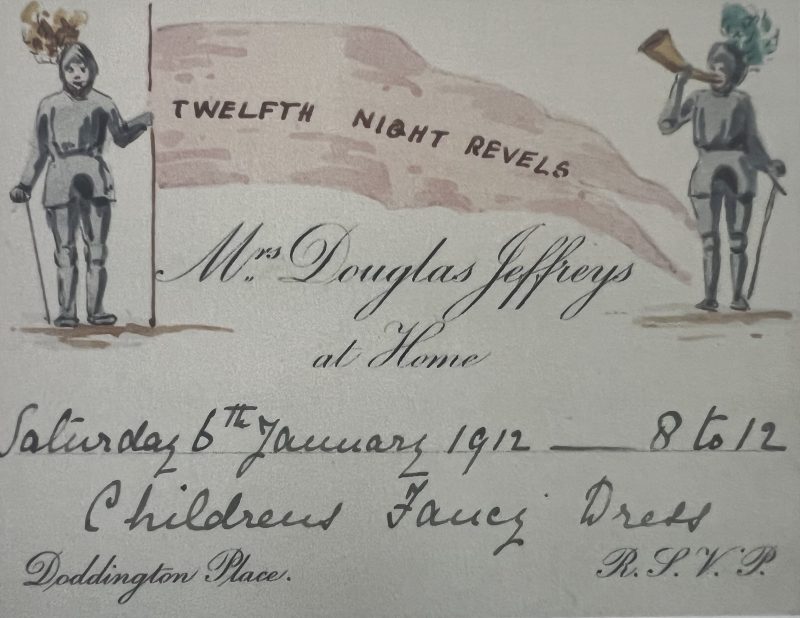 TWELFTH NIGHT REVELS
Mrs Douglas Jeffreys
at Home
Saturday 6th January 1912 — 8 to 12
Childrens Fancy Dress
Doddington Place.
R.S.V.P.